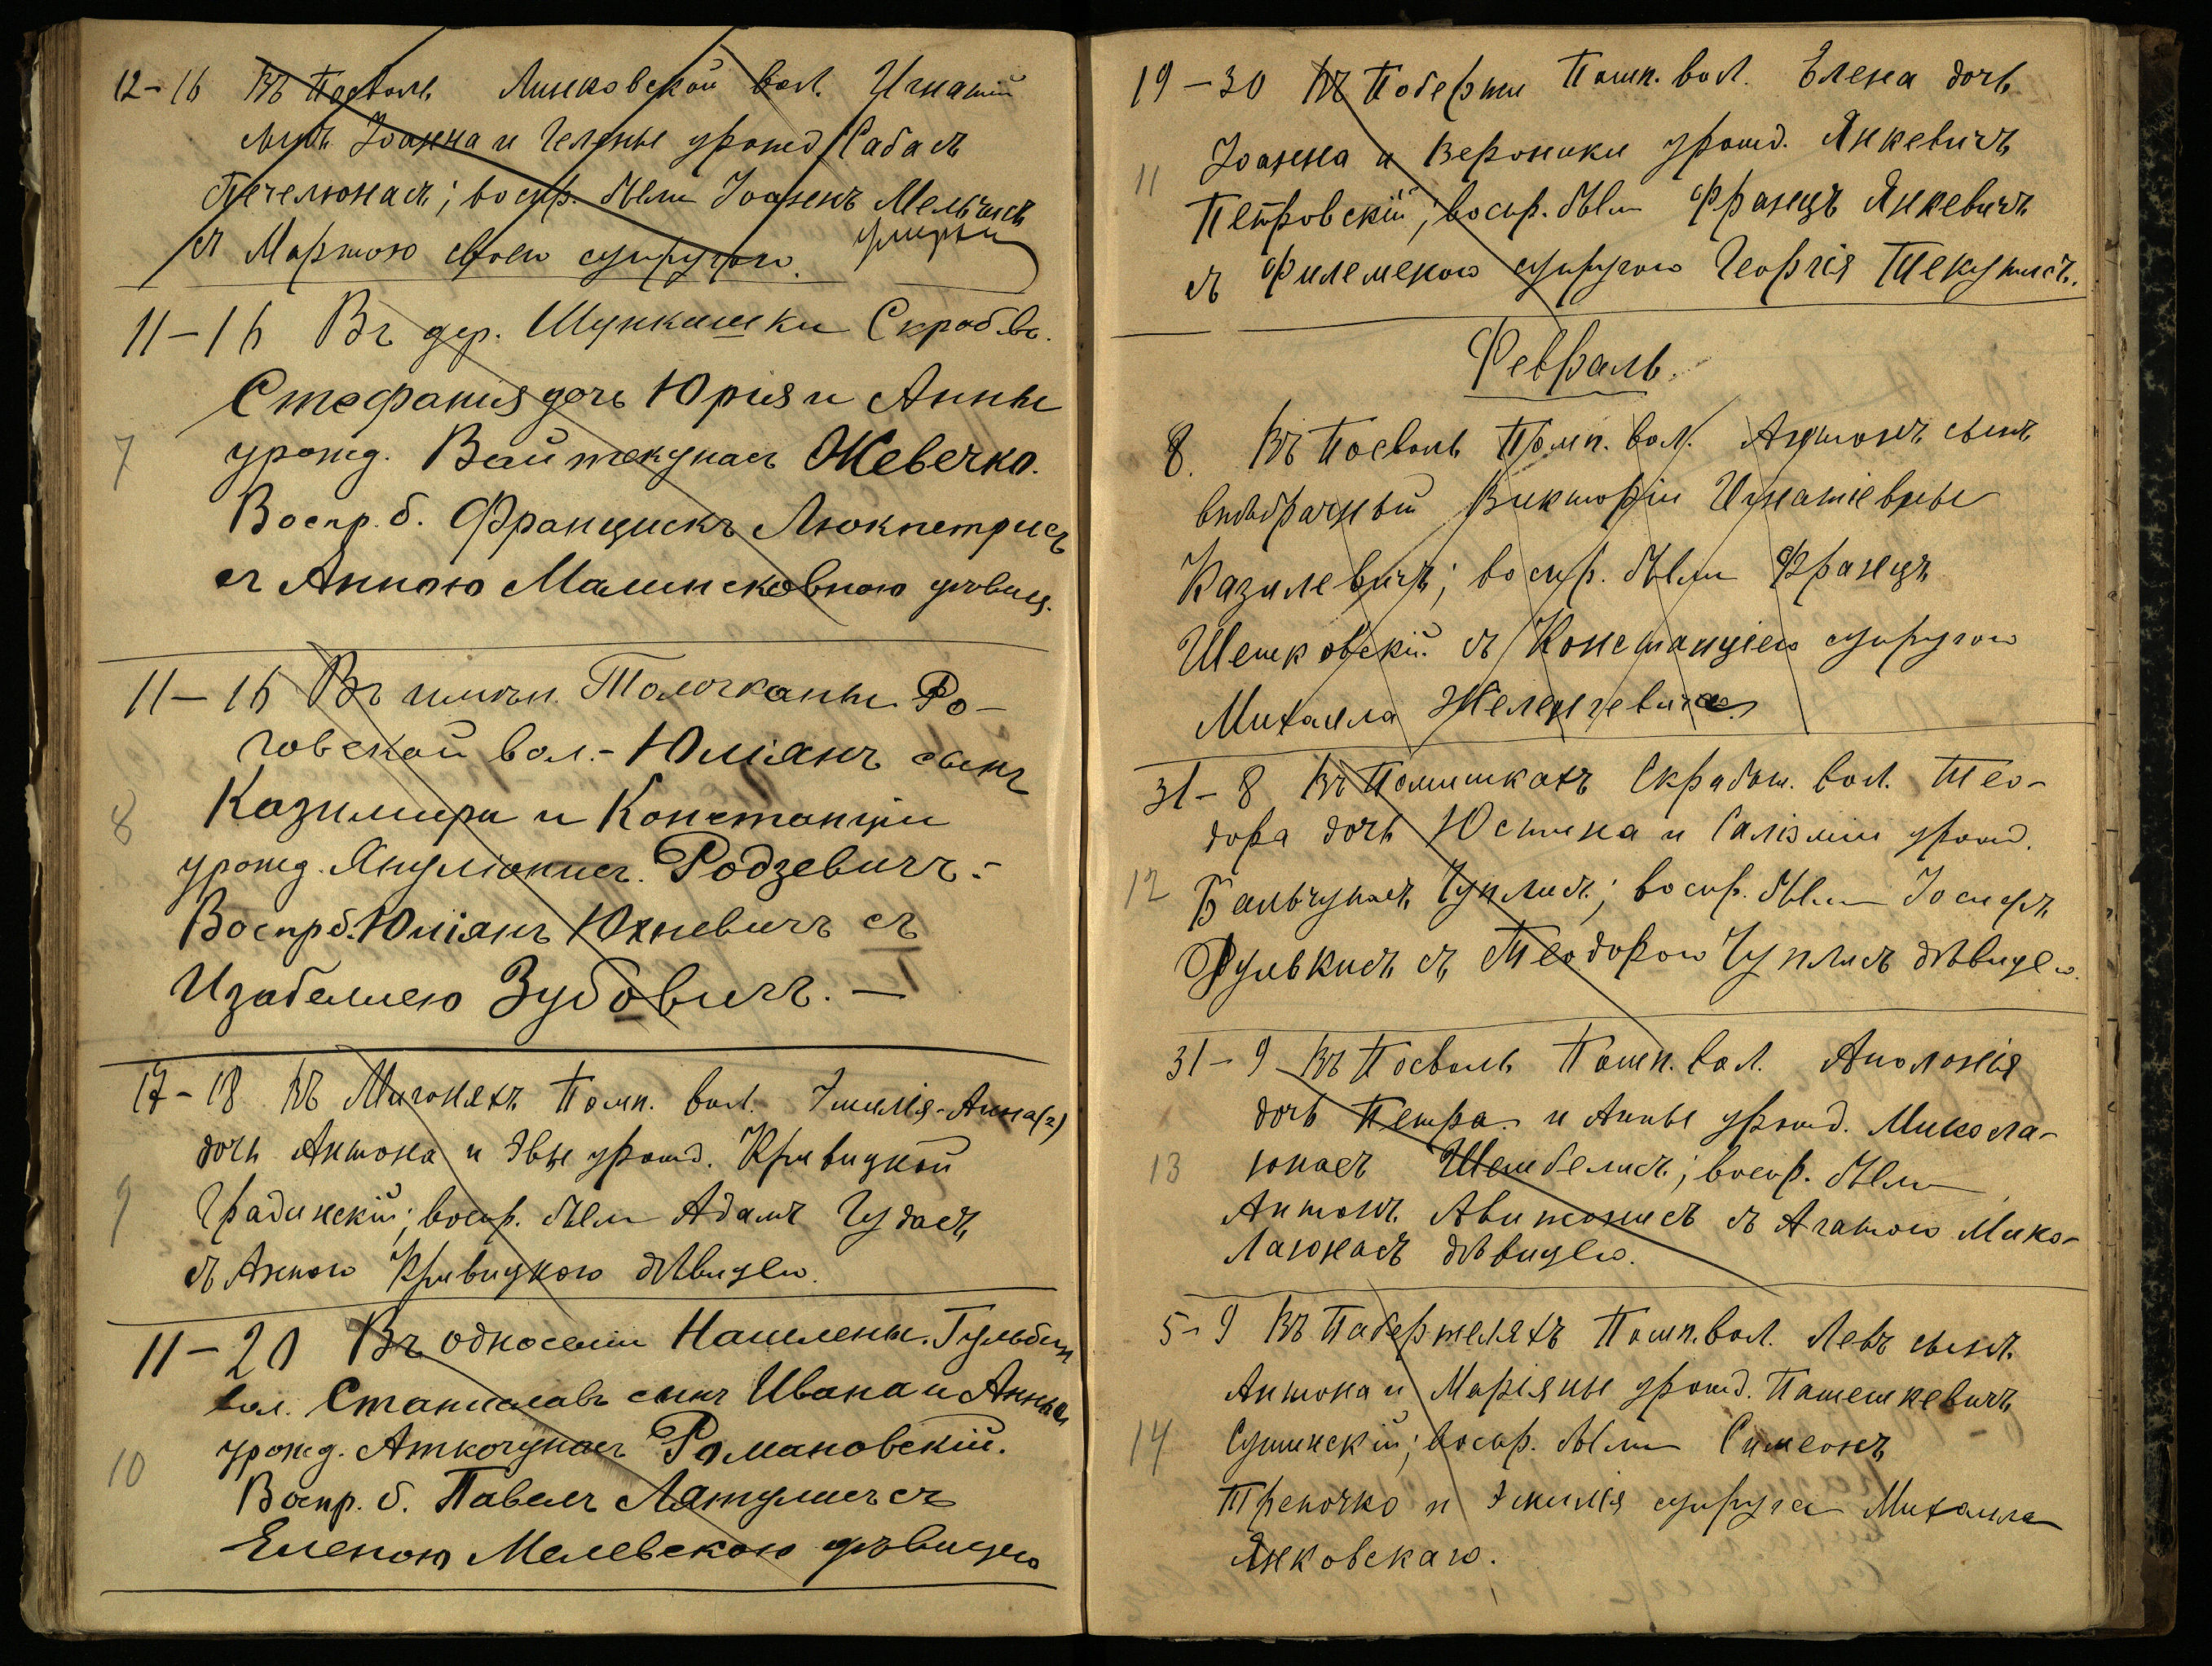 12-16 Въ Посволь Линковской вол. Игнатій
сынъ Іоанна и Гелены урожд. Сабасъ
Печелюнасъ; воспр. были Іоаннъ Мельчисъ
съ Мартою своею супругою.
11-16 Въ дер. Шункишки Скроб. в.
Стефанія дочь Юрія и Анны
7
урожд. Вайтекунасъ Жевечко.
Воспр. б. Францискъ Люкпетрисъ
съ Анною Малинсковною дѣвиц.
11-16 Въ имѣн. Толочканы Ро-
говской вол.- Юліянъ сынъ
8
Казимира и Констанціи
урожд. Янулюнисъ. Родзевичъ.-
Воспр б. Юліянъ Юхневичъ съ
Изабеллею Зубовичъ. —
17-18 Въ Мигоняхъ Помп. вол. Эмилія-Анна(2)
дочь Антона и Эвы урожд. Кривицкой
9
Градинскій; воспр. были Адамъ Гудасъ
съ Анною Кривицкою дѣвицею.
11-20 Въ односели Нашлены. Гульбин
вол. Станиславъ сынъ Ивана и Анны
урожд. Аткочунасъ Романовскій.
10
Воспр. б. Павелъ Лятулисъ съ
Еленою Малевскою дѣвицею
19-30 Въ Побержи Помп. вол. Елена дочь
11
Іоанна и Вероники урожд. Янкевичъ
Петровскій; воспр. были Францъ Янкевичъ
съ супругою Георгія Текутисъ.
Февраль.
8. Въ Посволь Помп. вол. Антонъ сынъ
внѣбрачный Викторіи Игнатіевны
Казилевичъ; воспр. были Францъ
Шешковскій съ Констанціею супругою
Михаила Желенгевича.
31-8 Въ Помишкахъ Скрабъш. вол. Тео-
дора дочь Юстина и Салюміи урожд.
12
Бальчунасъ Чуплисъ; воспр. были Іосифъ
Рулькисъ съ Теодорою Чуплисъ дѣвицею.
31-9 Въ Посволь Помп. вол. Аполонія
дочь Петра и Анны урожд. Микола-
13
юнасъ Шешбелисъ; воспр. были
Антонъ Авижонисъ съ Агатою Мико-
лаюнасъ дѣвицею.
5-9 Въ Пабержеляхъ Помп. вол. Левъ сынъ
Антона и Маріяны урожд. Пашешкевичъ
14
Сушинскій; воспр. были Симеонъ
Треночко и Эмилія супруга Михаила
Янковскаго.